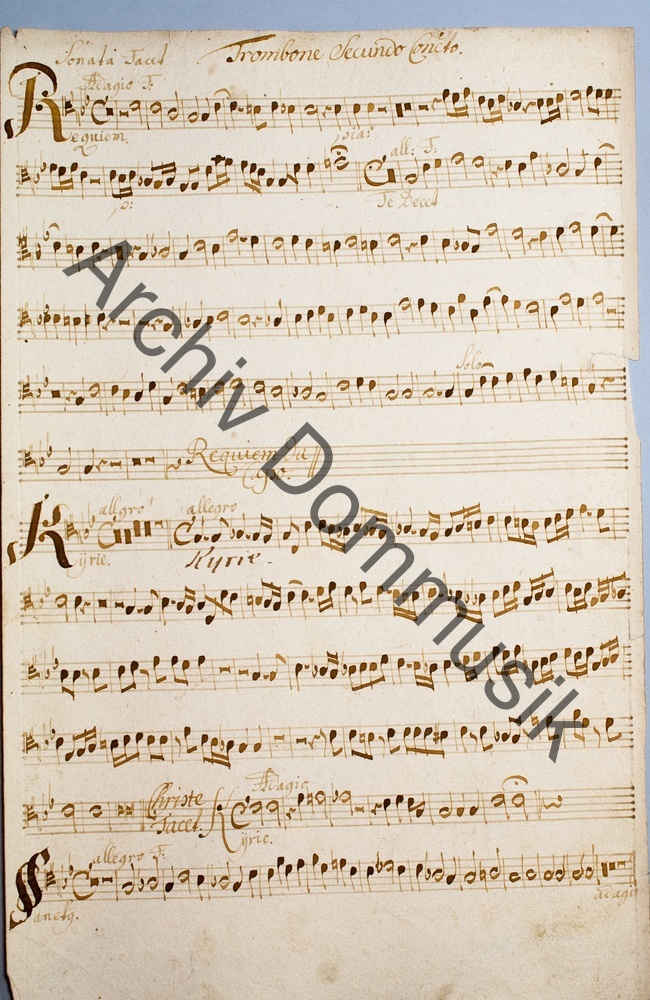 Sonata Tacet Trombone Secundo Conc̃to.
Adagio F:
Requiem.
pia:
all: F:
p: Te Decet
Solo
Requiem Da
Capo.
allgro allegro
Kyrie. Kyrie.
Adagio
Christe
Tacet.
Kyrie.
allegro F:
Sanctq. adagio
Archiv Dommusik